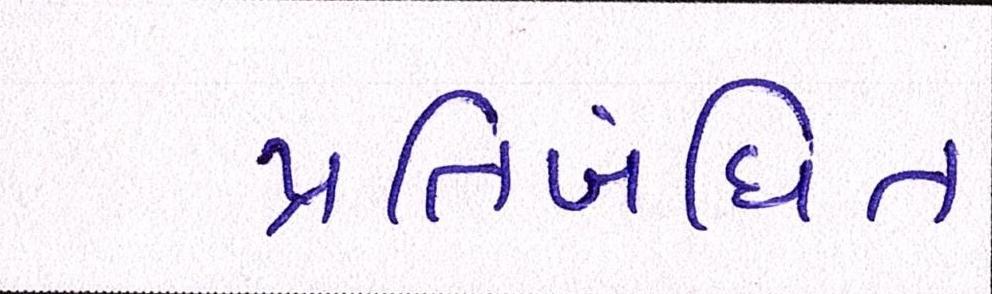 પ્રતિબંધિત